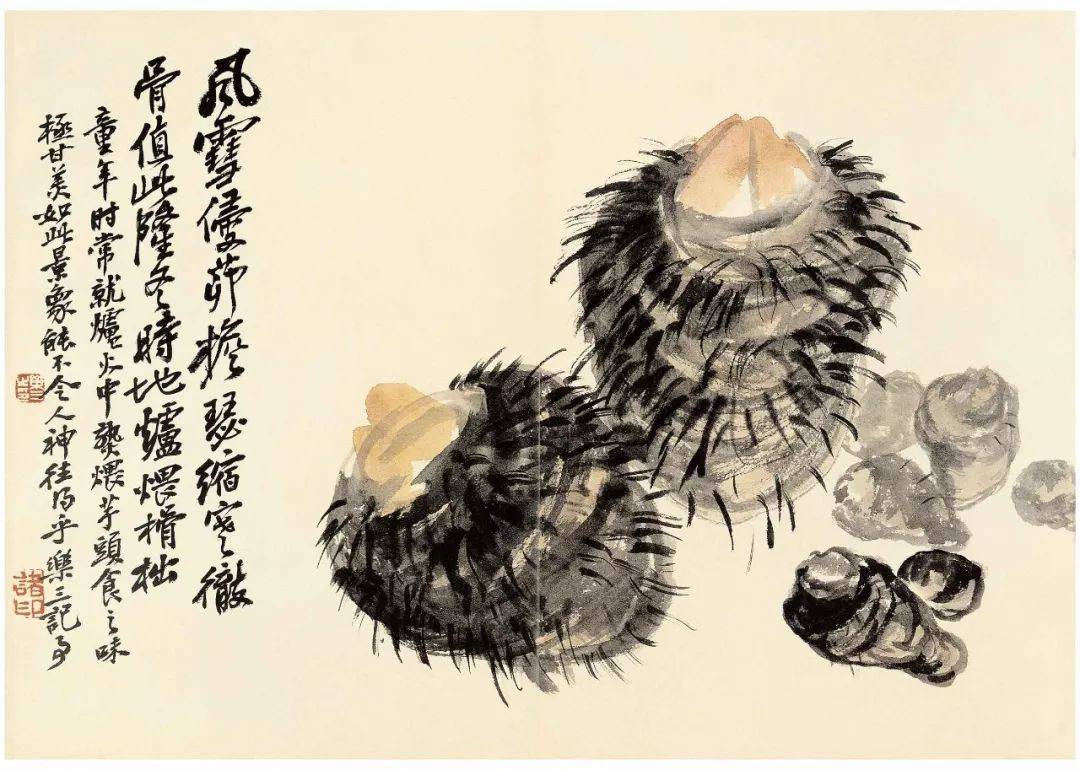 風雪侵茆檐瑟縮寒徹
骨值此隆冬時地爐煨榾柮
童年时常就爐火中煨芋頭食之味
極甘美如此景象能不令人神往乎樂三記
諸印